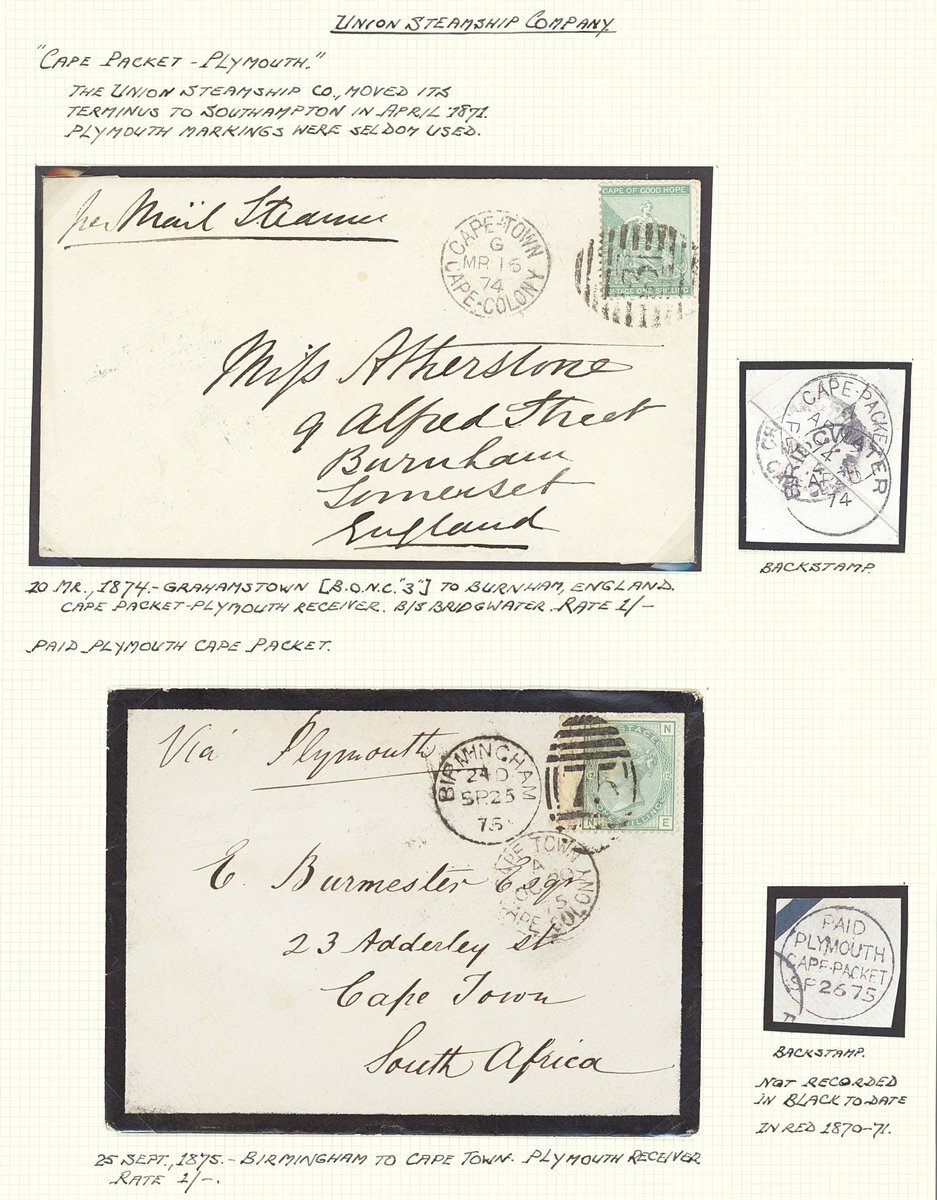 UNION STEAMSHIP COMPANY.
"CAPE PACKET - PLYMOUTH."
THE UNION STEAMSHIP CO., MOVED ITS
TERMINUS TO SOUTHAMPTON IN APRIL 1871.
PLYMOUTH MARKINGS WERE SELDOM USED.
per Mail Steamer
CAPE-TOWN
G
MR 16
74
CAPE-COLONY
CAPE OF GOOD HOPE
POSTAGE ONE SHILLING
Miss Atherstone
9 Alfred Street
Burnham
Somerset
England
CAPE-PACKET
BRIDGWATER
74
BACKSTAMP.
10 MR., 1874.- GRAHAMSTOWN [B.O.N.C."3"] TO BURNHAM, ENGLAND.
CAPE PACKET-PLYMOUTH RECEIVER. B/S BRIDGWATER. RATE 1/-
PAID PLYMOUTH CAPE PACKET.
Via Plymouth
BIRMINGHAM
24 D
SP 25
75
75
N
N E
CAPE TOWN
CAPE COLONY
E. Burmester Esqr
23 Adderley st
Cape Town
South Africa
PAID
PLYMOUTH
CAPE-PACKET
SP 26 75
BACKSTAMP.
NOT RECORDED
IN BLACK TO DATE
IN RED 1870-71.
25 SEPT., 1875.- BIRMINGHAM TO CAPE TOWN. PLYMOUTH RECEIVER
RATE 1/-.